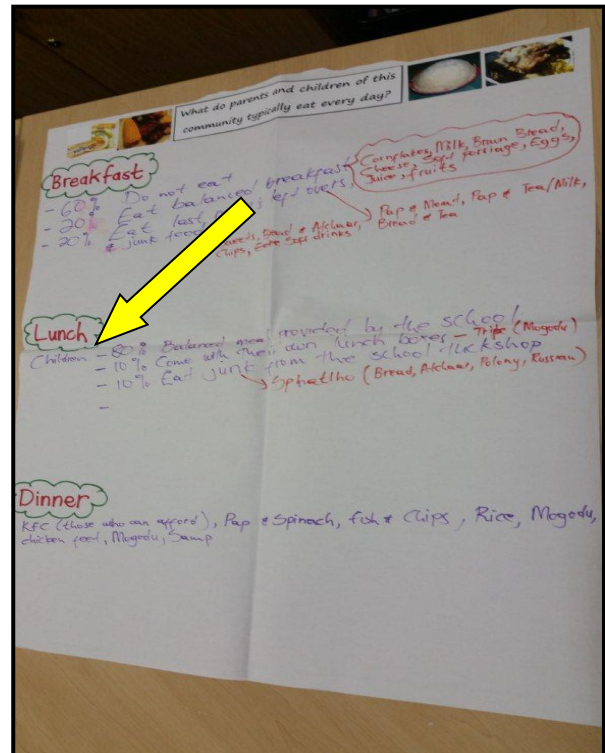 What do parents and children of this
community typically eat every day?
Breakfast
- 60% Do not eat
- 20% Eat balanced breakfast
- 20% Eat fast,
junk food
Cornflakes, Milk, Brown Bread,
Cheese, Soft porriage, Eggs,
Juice, fruits
Pap & Mead, Pap & Tea/Milk,
Bread & Tea
Sweets, Bread & Atchaar,
Chips, soft drinks
Lunch
Children - 80% Balanced meal provided by the school
- 10% Come with their own lunch boxes - Tripe (Mogodu)
- 10% Eat junk from the school tuckshop
Sphatlho (Bread, Atchaar, Polony, Russian)
-
Dinner
KFC (those who can afford), Pap & Spinach, fish & Chips, Rice, Mogodu,
chicken feet, Mogodu, Samp